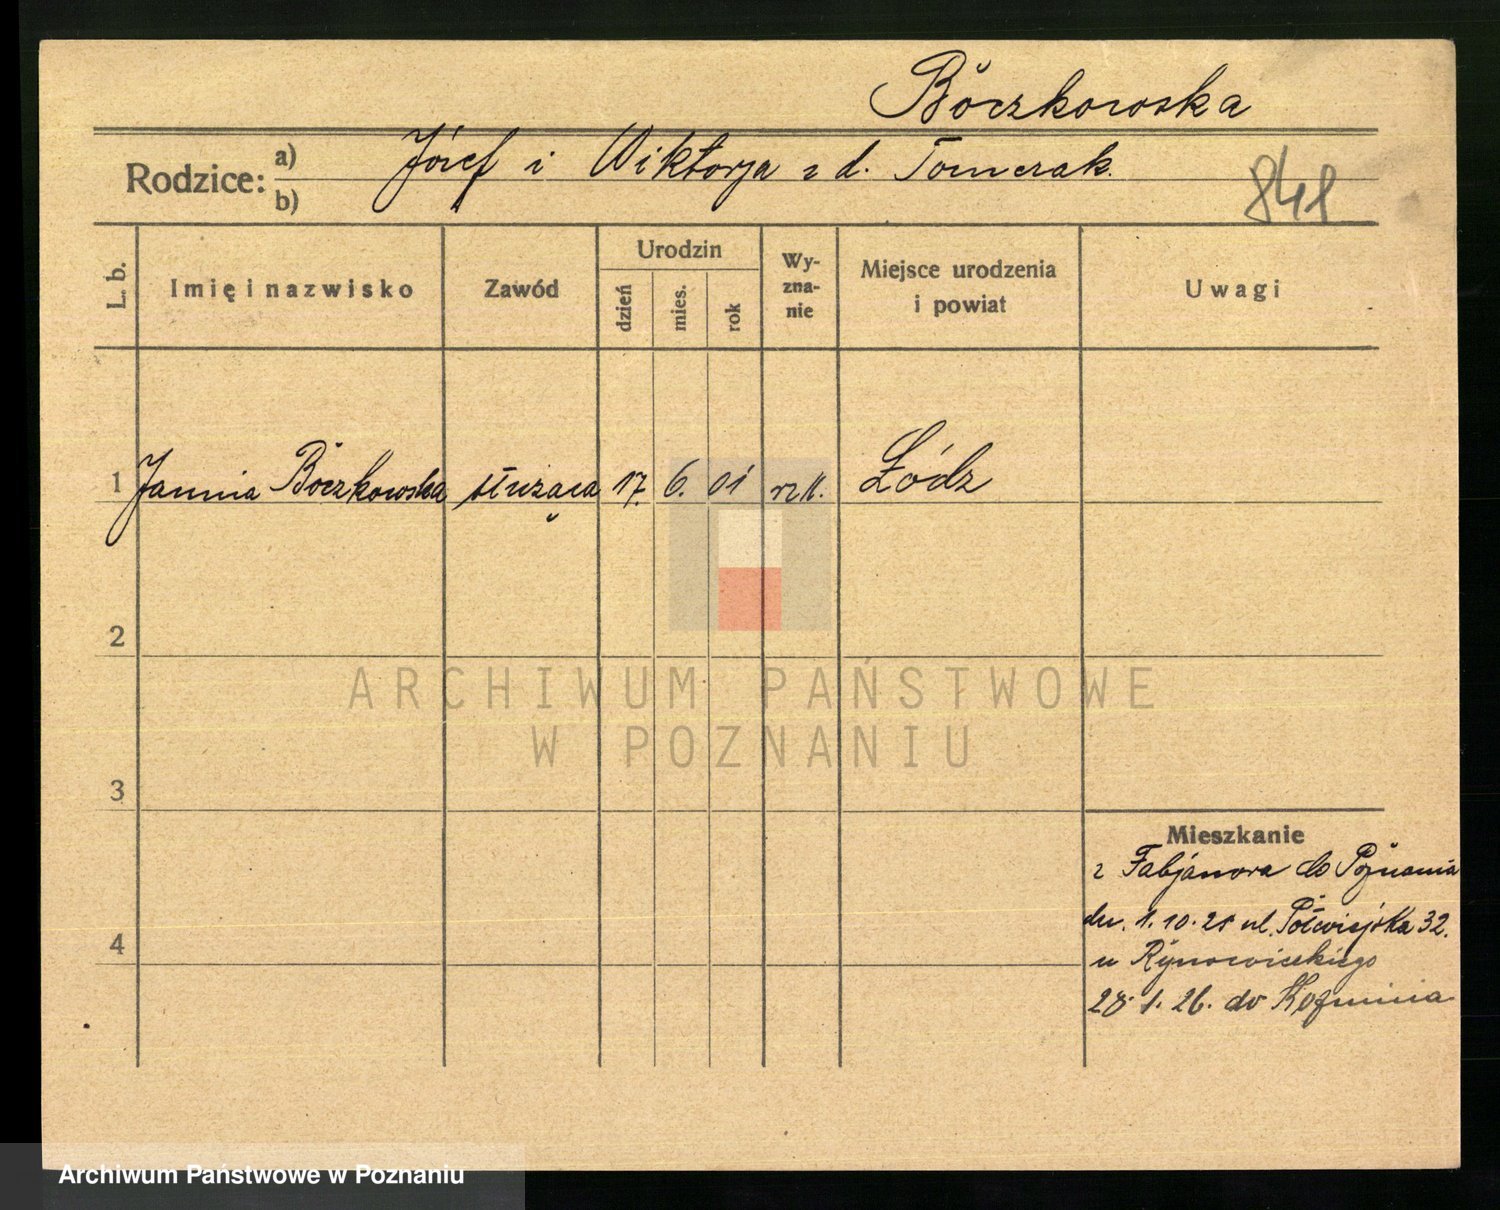 Böczkowska
Rodzice: a) Józef i Wiktorja z d. Tomczak.
b)
848
L. b.
Imię i nazwisko
Zawód
Urodzin
dzień
mies.
rok
Wy-
zna-
nie
Miejsce urodzenia
i powiat
Uwagi
1 Janina Böczkowska służąca 17. 6. 01 rz k. Łódz
2
3
4
Mieszkanie
z Fabjanowa do Poznania
dn. 1. 10. 25 ul. Półwiejska 32.
u Rynowieckiego
28. 1. 26. do Koźmina
ARCHIWUM PAŃSTWOWE
W POZNANIU
Archiwum Państwowe w Poznaniu